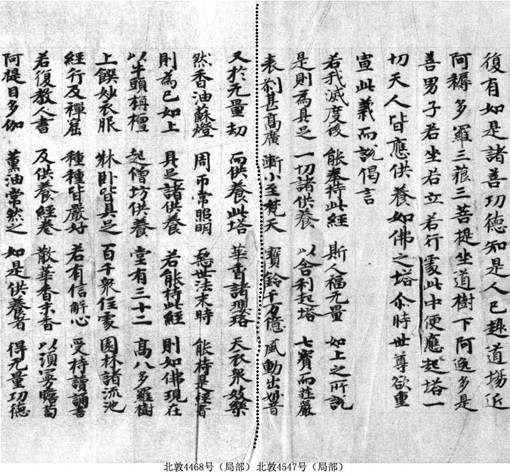 復有如是諸善功德知是人已趣道場近
阿耨多羅三藐三菩提坐道樹下阿逸多是
善男子若坐若立若行處此中便應起塔一
切天人皆應供養如佛之塔尒時世尊欲重
宣此義而說偈言
若我滅度後 能奉持此經 斯人福无量 如上之所說
是則為具足 一切諸供養 以舍利起塔 七寶而莊嚴
表剎甚高廣 漸小至梵天 寶鈴千万億 風動出妙音
又於无量劫 而供養此塔 華香諸瓔珞 天衣衆伎樂
然香油蘇燈 周帀常照明 惡世法末時 能持是經者
則為已如上 具足諸供養 若能持此經 則如佛現在
以牛頭栴檀 起僧坊供養 堂有三十二 高八多羅樹
上饌妙衣服 牀卧皆具足 百千衆住處 園林諸流池
經行及禪窟 種種皆嚴好 若有信解心 受持讀誦書
若復教人書 及供養經卷 散華香末香 以須曼瞻蔔
阿提目多伽 薰油常然之 如是供養者 得无量功德
北敦4468号（局部） 北敦4547号（局部）